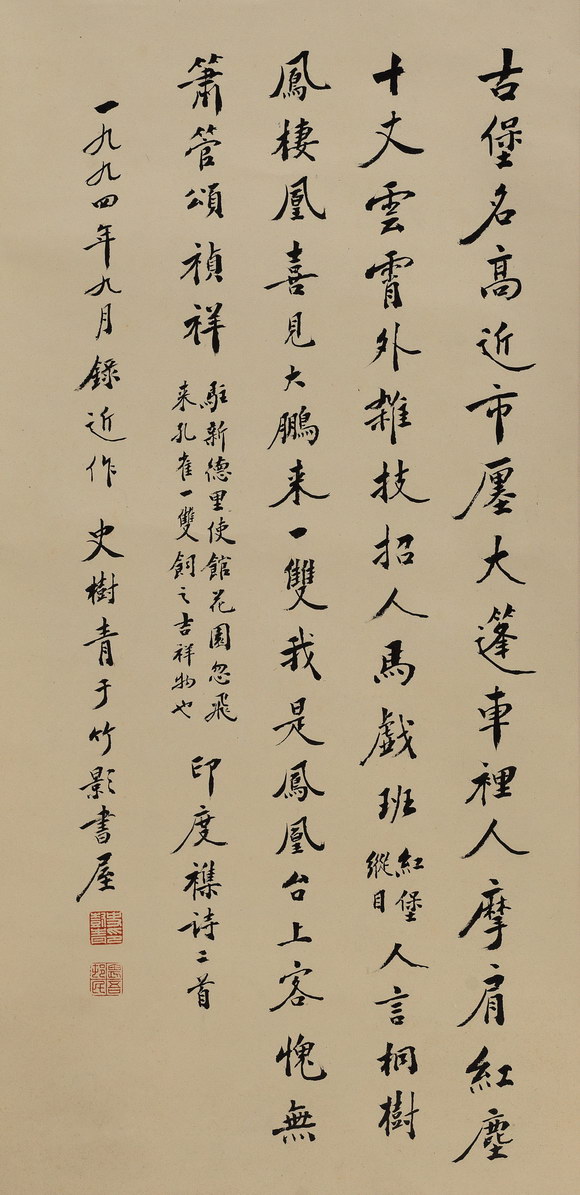 古堡名高近市廛大篷車裡人摩肩紅塵
十丈雲霄外雜技招人馬戲班
紅堡
縱目
人言桐樹
鳳棲凰喜見大鵬来一雙我是鳳凰台上客愧無
簫管頌禎祥
駐新德里使館花園忽飛
来孔雀一雙飼之吉祥物也
印度襍诗二首
一九九四年九月錄近作 史樹青于竹影書屋